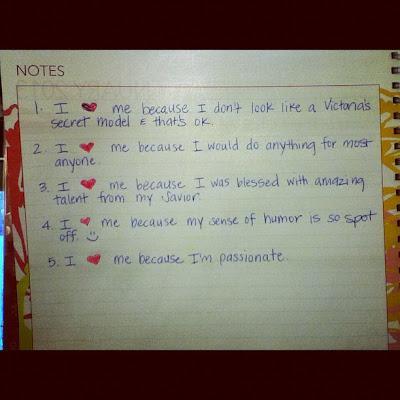 NOTES
1. I ❤ me because I don't look like a Victoria's
secret model & that's ok.
2. I ❤ me because I would do anything for most
anyone.
3. I ❤ me because I was blessed with amazing
talent from my Savior.
4. I ❤ me because my sense of humor is so spot
off. :)
5. I ❤ me because I'm passionate.